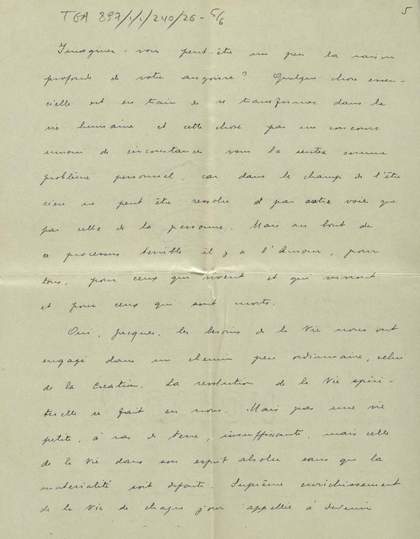 TGA 897/1/1/240/26-5/6
5
Imaginez-vous peut-être un peu la raison
profonde de votre angoisse? Quelque chose essen-
cielle est en train de se transformer dans la
vie humaine et cette chose par un concours
de circonstances vous la sentez comme
problème personnel, car dans le champs de l'être
rien ne peut être résolu par autre voie que
par celle de la personne. Mais au bout de
ce processus terrible il y a l'Amour, pour
tous, pour ceux qui vivent et qui vivront
et pour ceux qui sont morts.
Oui, Jacques, les besoins de la Vie nous ont
engagé dans un chemin peu ordinaire, celui
de la Création. La révolution de la Vie spiri-
tuelle se fait en nous. Mais pas une vie
petite, à ras de terre, insuffisante, mais celle
de la Vie dans son esprit absolu sans que la
matérialité soit Suprême enrichissement
de la Vie de chaque jour appelée à devenir